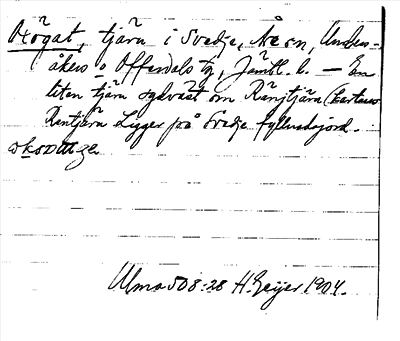 Oxögat, tjärn i Svedje, Åre sn, Unders-
åkers o Offerdals tg, Jämtl. l. — En
liten tjärn sydväst om Ränstjärn (kartans
Rentjärn Ligger på Svedje fyllnadsjord.
Ulma 508:28 H. Geijer 1904.